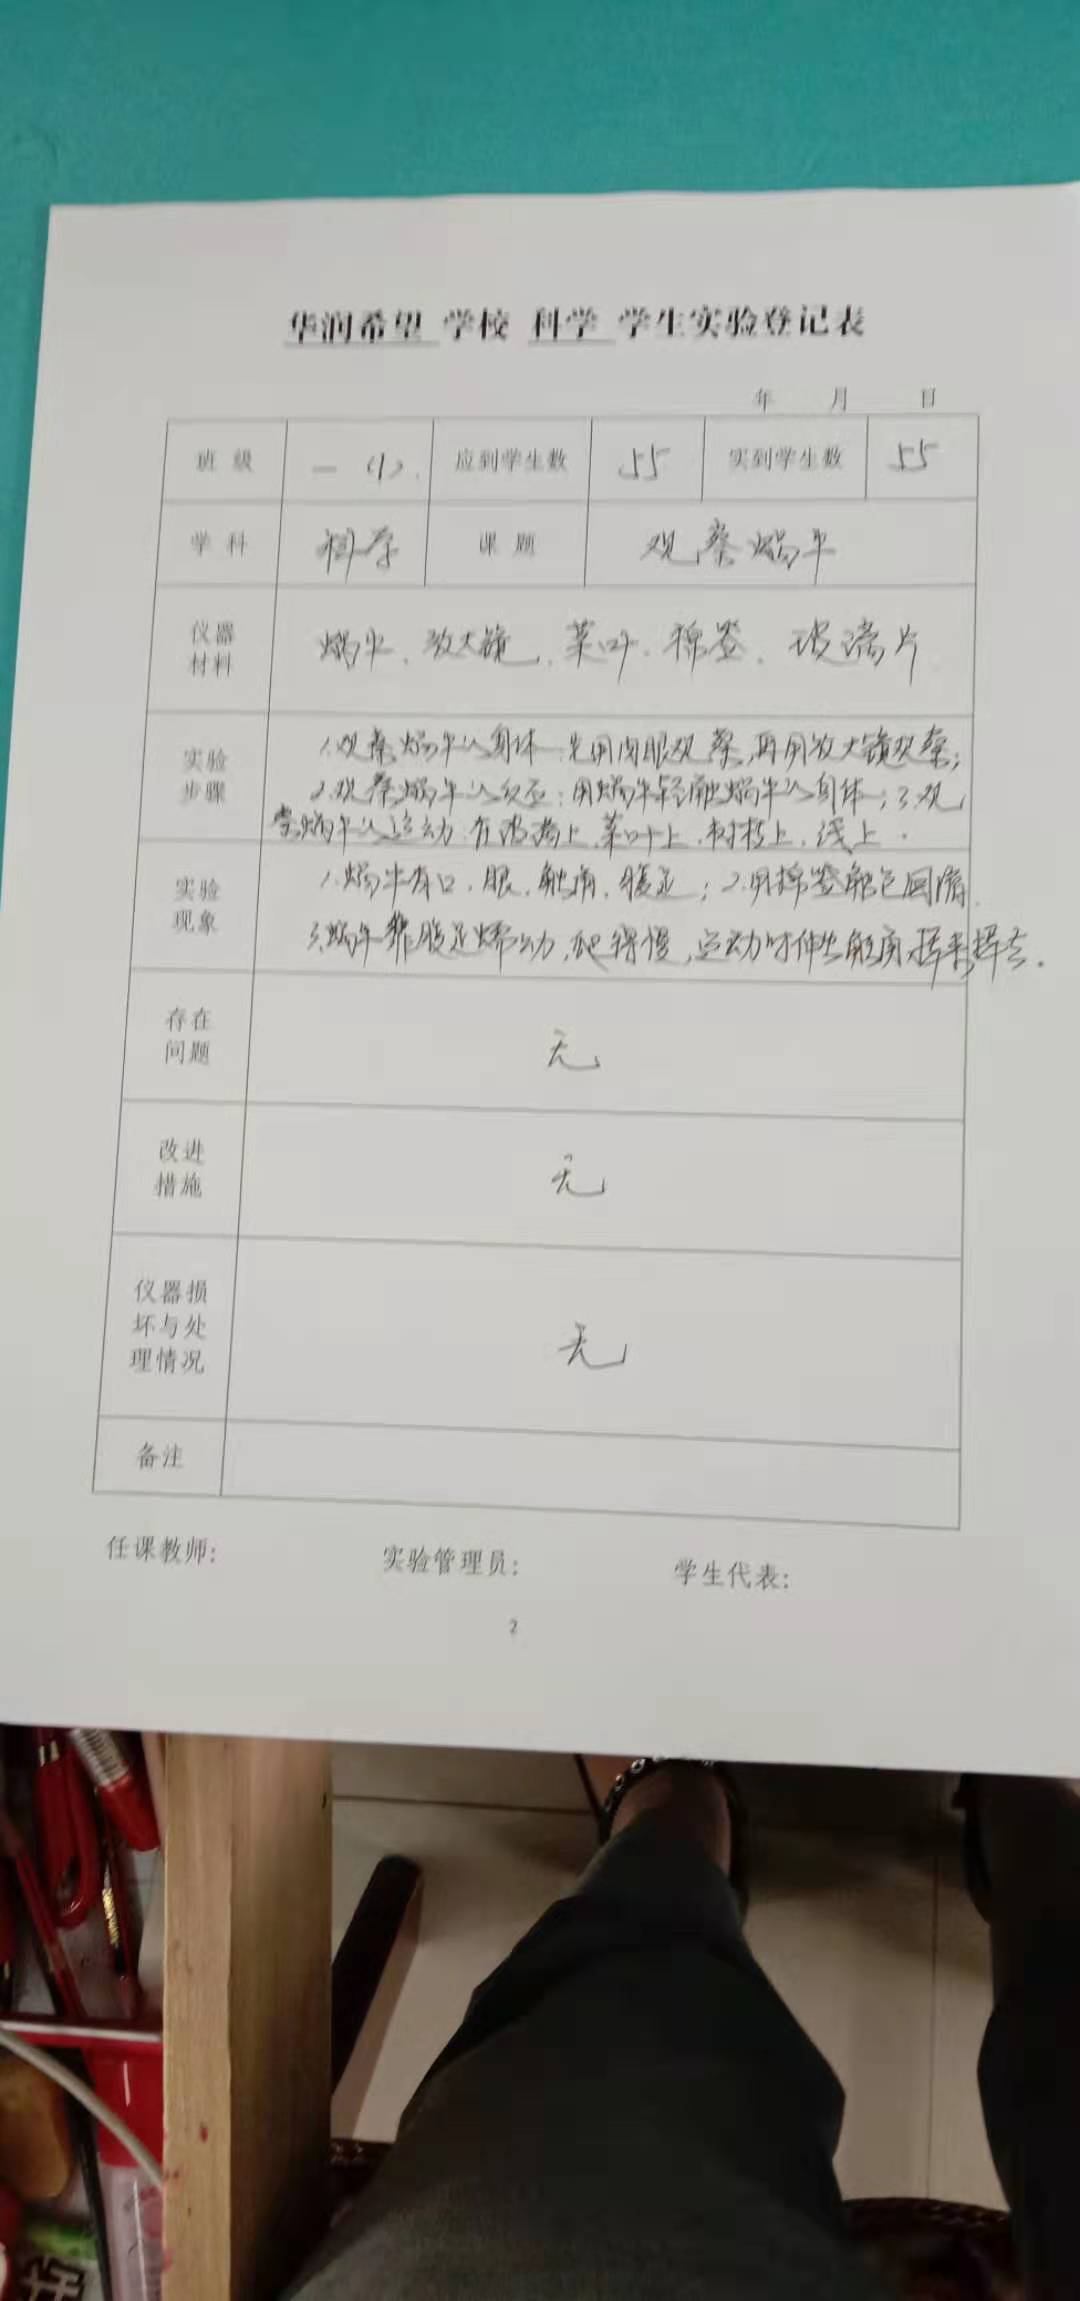 华润希望 学校 科学 学生实验登记表
年 月 日
班 级 一(1). 应到学生数 55 实到学生数 55
学 科 科学 课 题 观察蜗牛
仪器 材料 蜗牛、放大镜、菜叶、棉签、玻璃片
实验 步骤
1.观察蜗牛的身体:先用肉眼观察,再用放大镜观察;
2.观察蜗牛的反应:用蜗牛轻触蜗牛的身体;3.观
察蜗牛的运动:在玻璃上、菜叶上、树枝上、线上.
实验 现象
1.蜗牛有口、眼、触角、腹足;2.用棉签触它回缩
3.蜗牛靠腹足蠕动,爬得慢,运动时伸出触角探来探去.
存在 问题 无
改进 措施 无
仪器损 坏与处 理情况 无
备注
任课教师: 实验管理员: 学生代表:
2